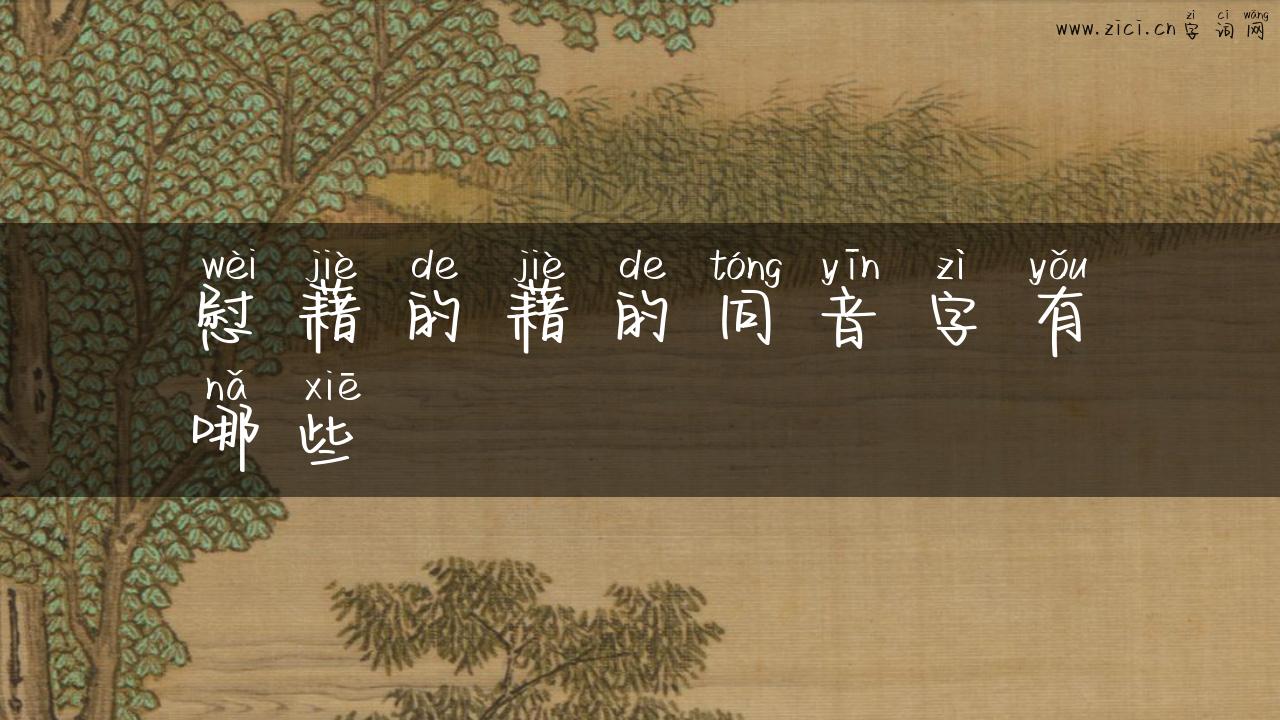 zì cí wǎng
www.zici.cn字词网
wèi jiè de jiè de tóng yīn zì yǒu
慰藉的藉的同音字有
nǎ xiē
哪些